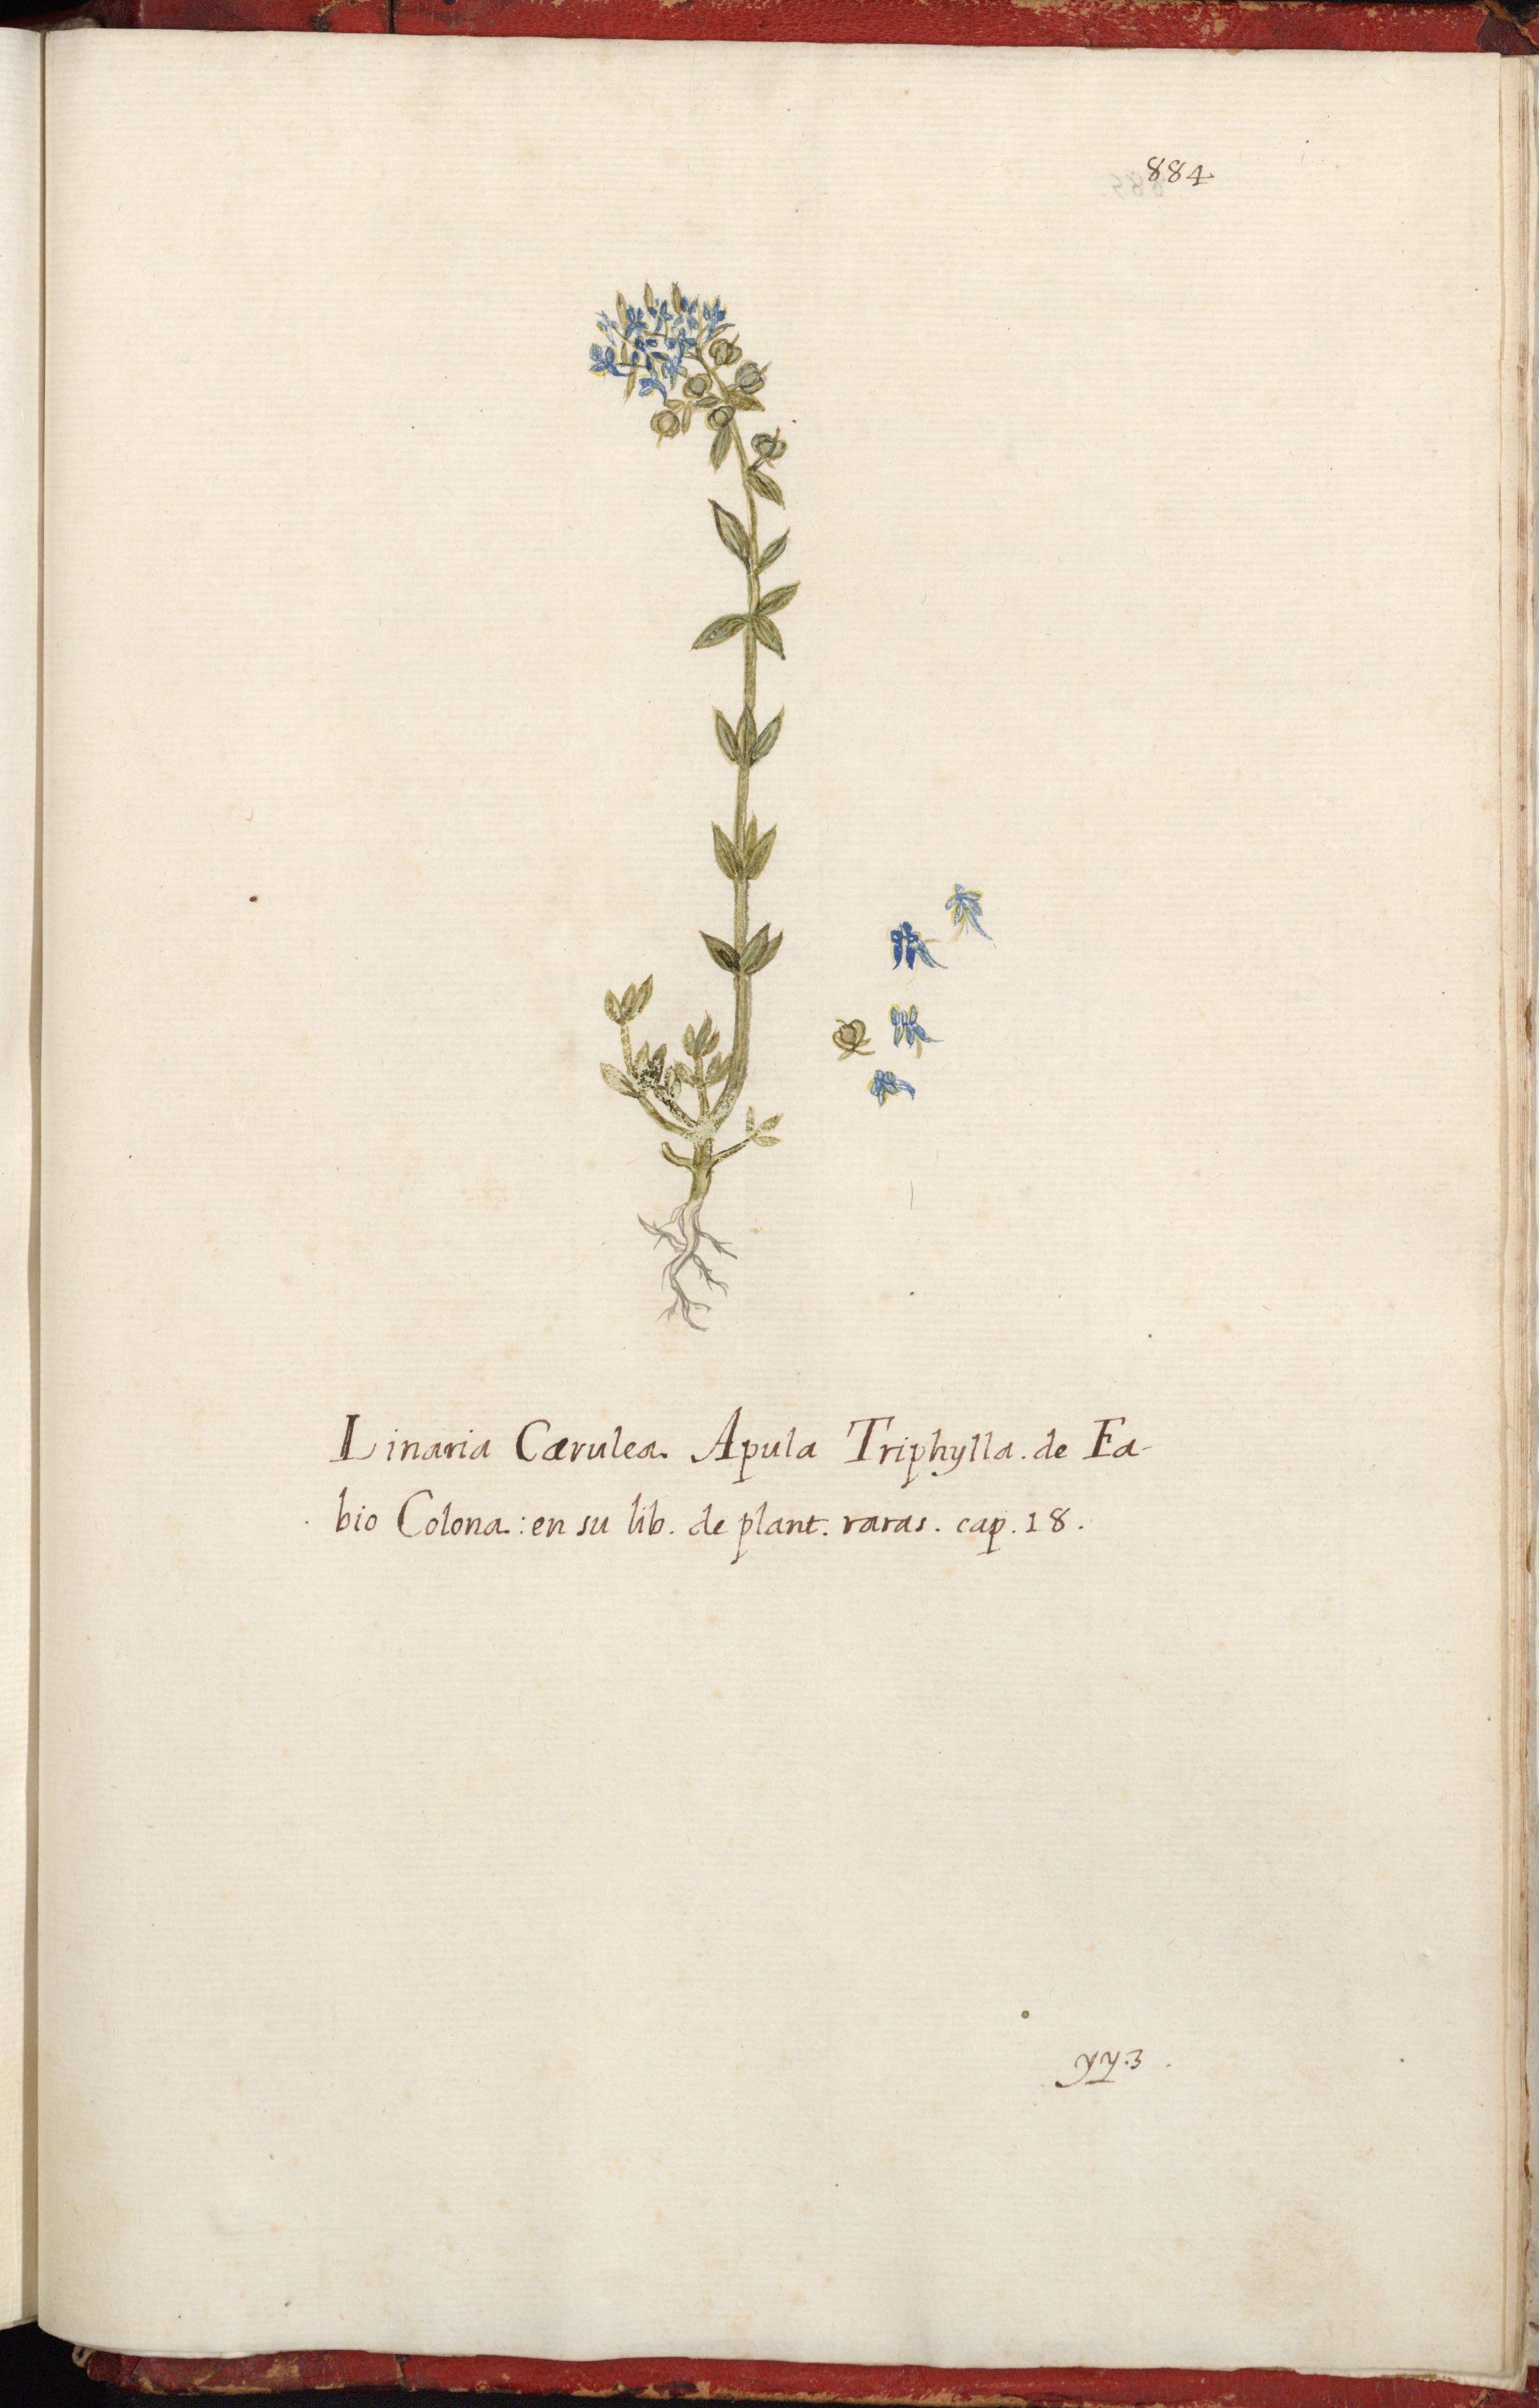 884
Linaria Cærulea. Apula Triphylla. de Fa-
bio Colona: en su lib. de plant. raras. cap. 18.
yy.3.